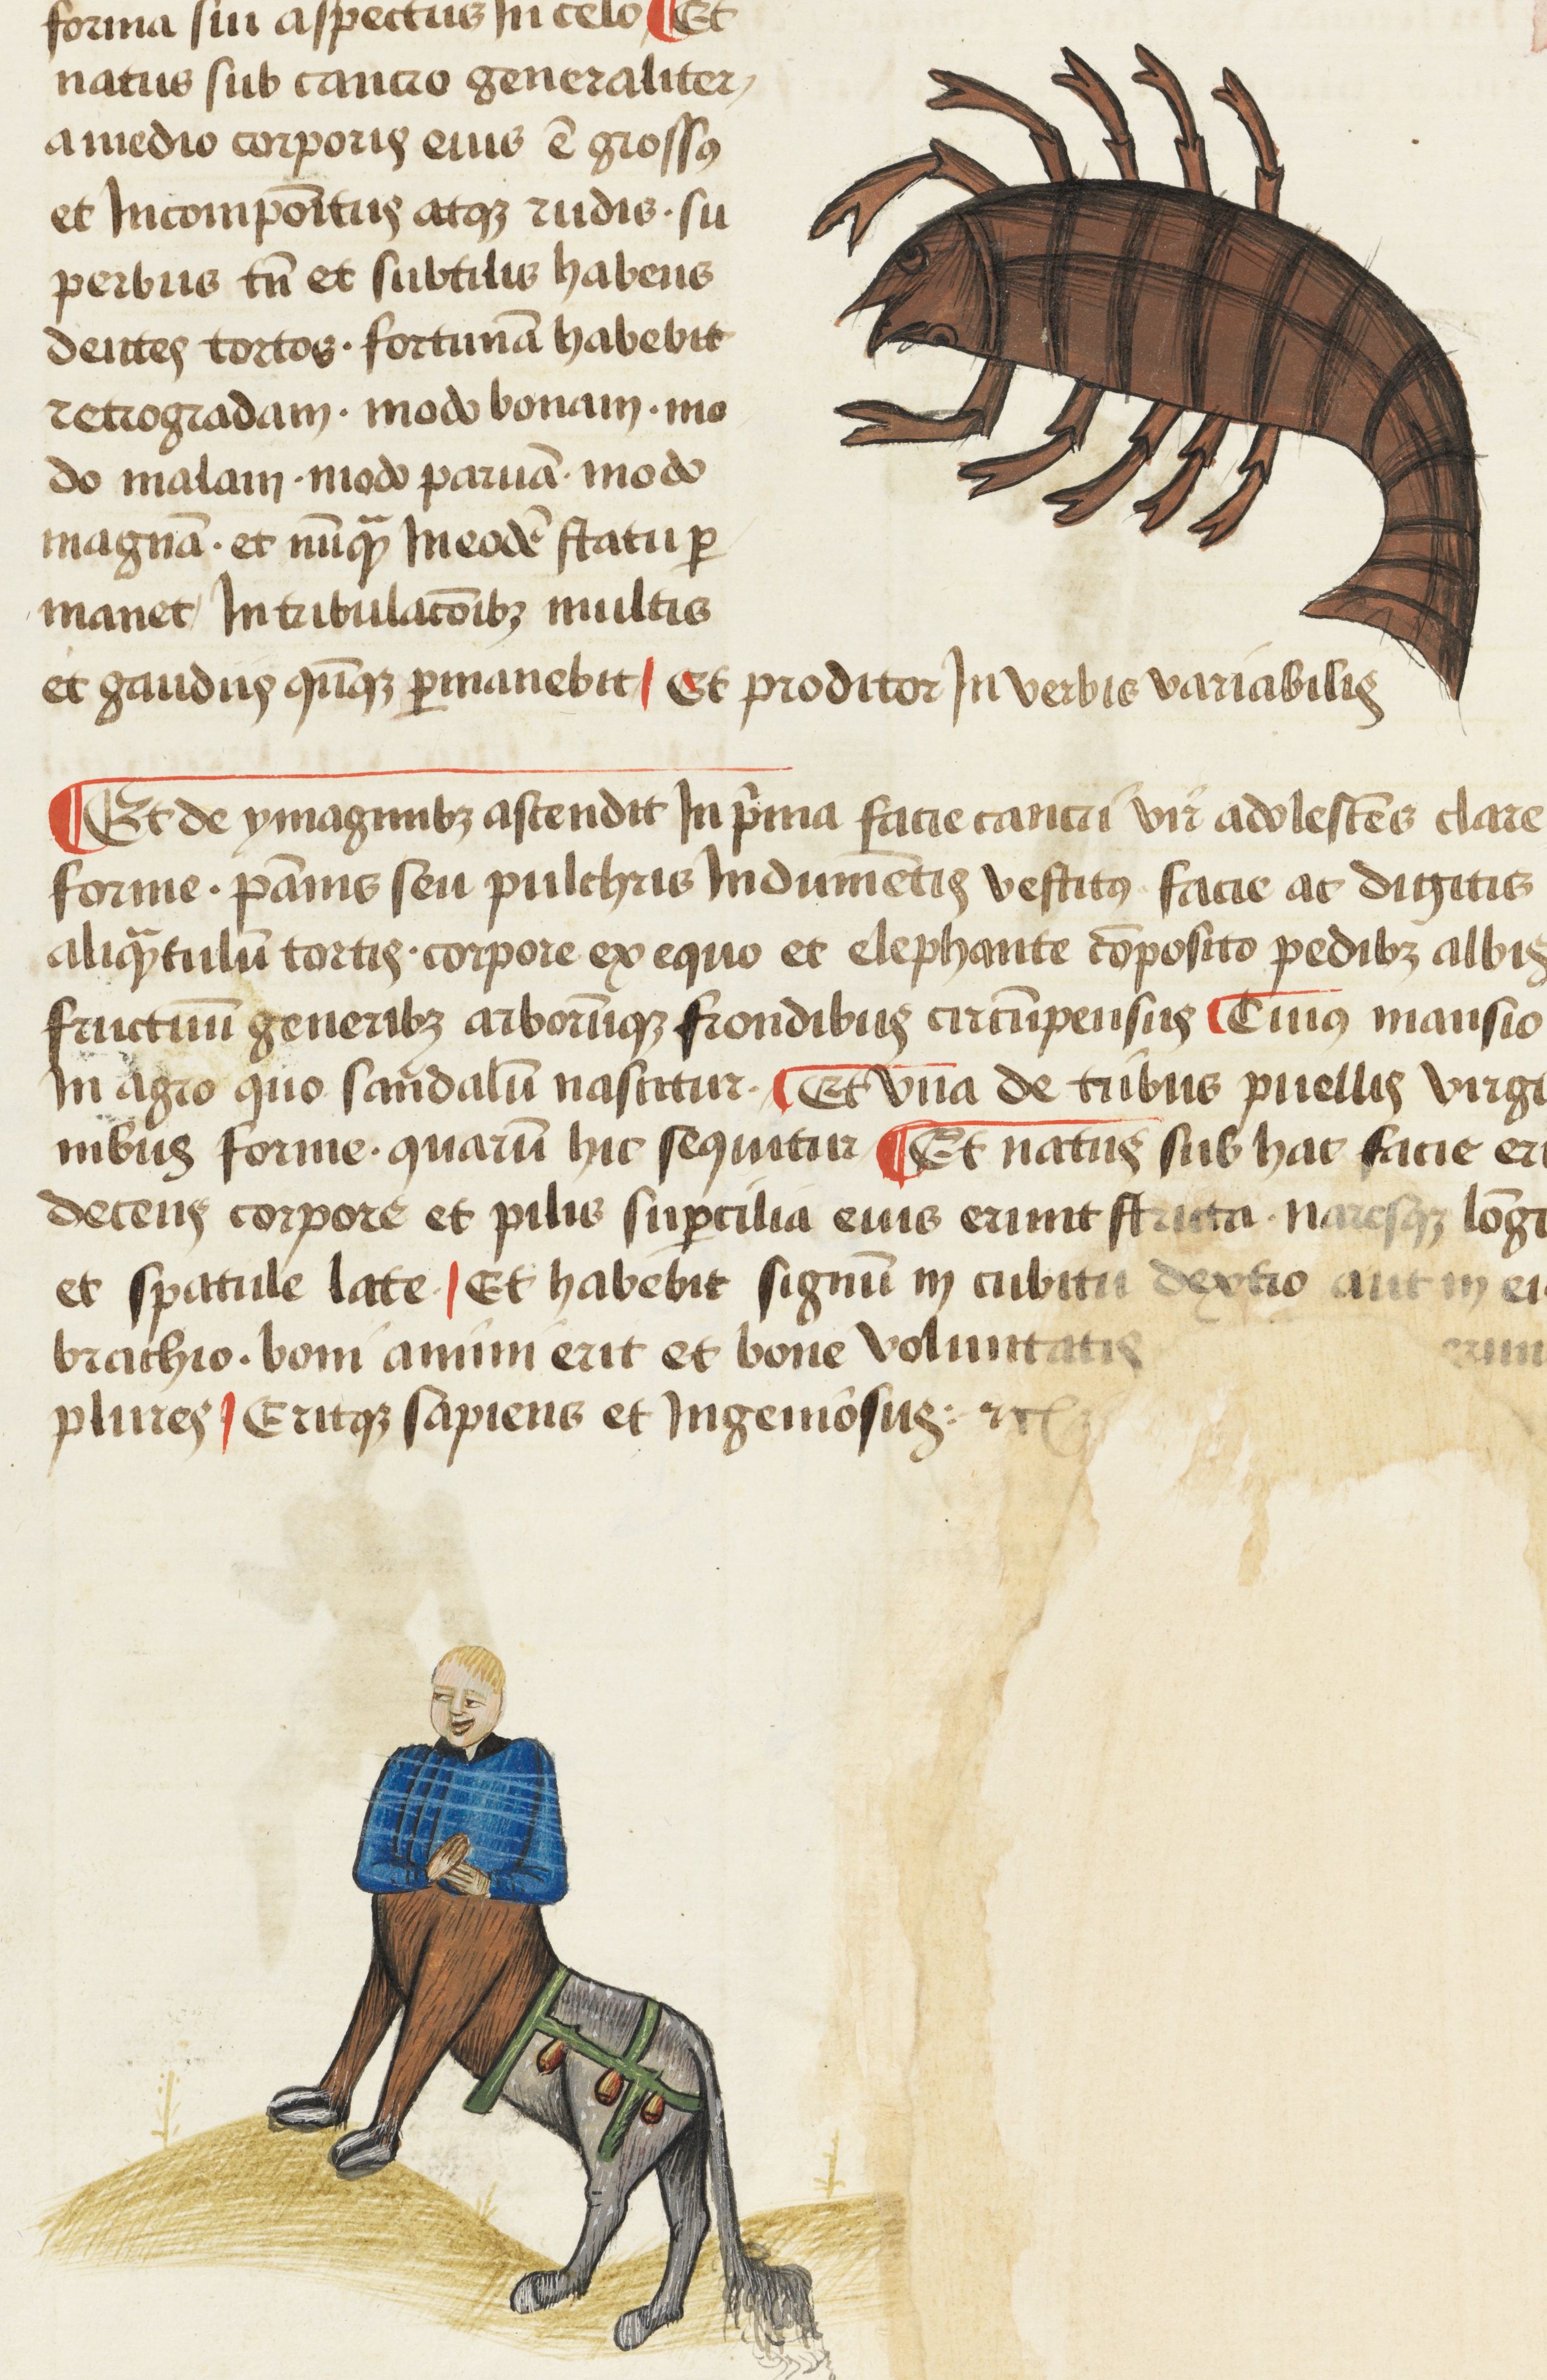 forma siu aspectus In celo Et
natus sub cancro generaliter
a medio corporis eius ē grossꝯ
et Incompoītus atqꝫ rudis · su
perbus tn̄ et subtilis habens
dentes tortos · fortunā habebit
retrogradam · modo bonam · mo
do malam · modo paruā · modo
magnā · et nūqᷓ In eodē statu ꝑ
manet In tribulacōibꝫ multis
et gaudiis qn̄qꝫ ꝑmanebit Et proditor In verbis variabilis
Et de ymaginibꝫ ascendit In pͥma facie cancri vir adolescēs clare
forme · pānis seu pulchris Indumētis vestitꝯ facie ac digitis
aliqᷓtulū tortis · corpore ex equo et elephante cōposito pedibꝫ albis
fructuū generibꝫ arborūqꝫ frondibus circūpensus Cuiꝯ mansio
In agro quo sandalū nascitur · Et vna de tribus puellis virgi
nibus forme · quarū hic sequitur Et natus sub hac facie eri
decens corpore et pilis suꝑcilia eius erunt stricta · naresqꝫ lōge
et spatule late · Et habebit signū in cubitu dextro aut in ei
brachio · boni animi erit et bone voluntatis erunt
plures Eritqꝫ sapiens et Ingeniosus :